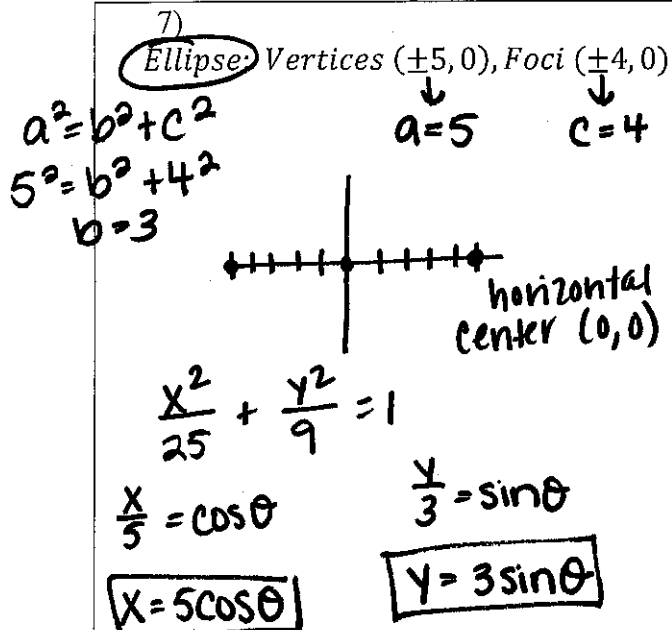 7)
Ellipse: Vertices (±5, 0), Foci (±4, 0)
↓ ↓
a=5 c=4
a²=b²+c²
5²=b²+4²
b=3
horizontal
center (0,0)
x²/25 + y²/9 = 1
x/5 = cosθ
y/3 = sinθ
x = 5cosθ
y = 3sinθ